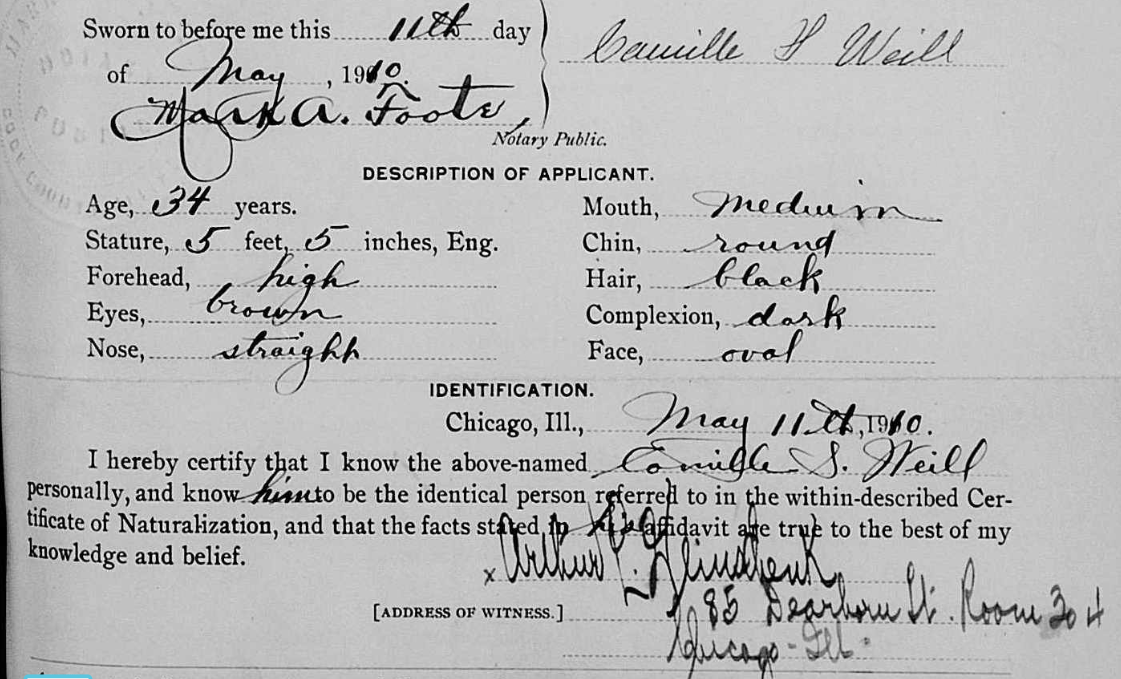 Sworn to before me this 11th day
of May, 1910.
Camille H Weill
Mark A. Foote,
Notary Public.
DESCRIPTION OF APPLICANT.
Age, 34 years. Mouth, medium
Stature, 5 feet, 5 inches, Eng. Chin, round
Forehead, high Hair, black
Eyes, brown Complexion, dark
Nose, straight Face, oval
IDENTIFICATION.
Chicago, Ill., May 11th, 1910.
I hereby certify that I know the above-named Camille S. Weill
personally, and know him to be the identical person referred to in the within-described Cer-
tificate of Naturalization, and that the facts stated in his affidavit are true to the best of my
knowledge and belief.
x Arthur
[ADDRESS OF WITNESS.] 85 Dearborn St. Room 304
Chicago - Ill.